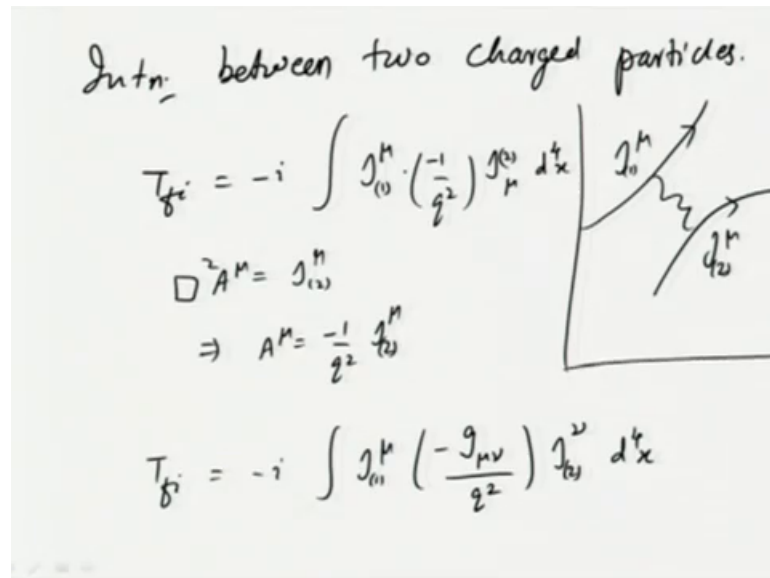 Intn. between two charged particles.
T_{fi} = -i ∫ J^μ_{(1)} · (-1/q²) J^{(2)}_μ d⁴x
J^μ_{(1)}
J^μ_{(2)}
□² A^μ = J^μ_{(2)}
⇒ A^μ = -1/q² J^μ_{(2)}
T_{fi} = -i ∫ J^μ_{(1)} (-g_{μν}/q²) J^ν_{(2)} d⁴x